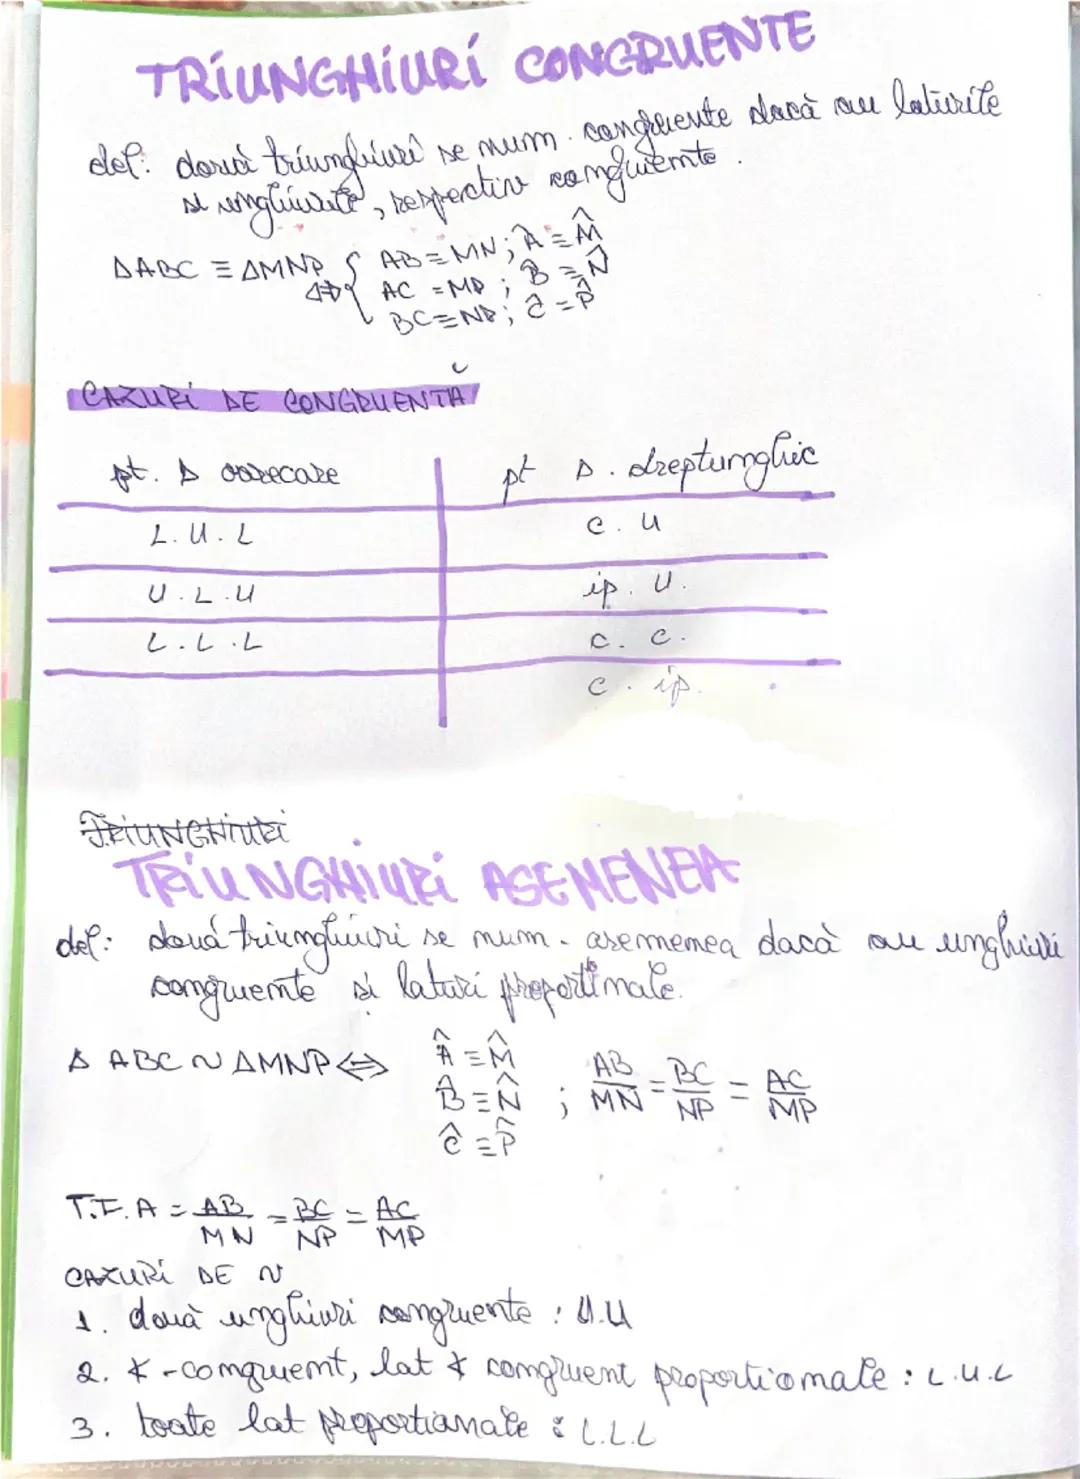 TRIUNGHIURI CONGRUENTE
def: două triunghiuri se num. congruente dacă au laturile
si unghiurile, respectiv congruente.
ΔABC ≡ ΔMNP ⇔ { AB ≡ MN; Â ≡ M̂
AC = MP; B̂ ≡ N̂
BC ≡ NP; Ĉ = P̂
CAZURI DE CONGRUENTĂ
pt. Δ oarecare pt Δ. dreptunghic
L.U.L C.U
U.L.U ip.U.
L.L.L C.C.
C.ip.
TRIUNGHIURI
TRIUNGHIURI ASEMENEA
def: două triunghiuri se num. asemenea dacă au unghiuri
congruente si laturi proportionale.
Δ ABC ~ ΔMNP ⇔ Â ≡ M̂
B̂ ≡ N̂ ; AB/MN = BC/NP = AC/MP
Ĉ ≡ P̂
T.F.A = AB/MN = BC/NP = AC/MP
CAZURI DE ~
1. două unghiuri congruente : U.U
2. ∢-congruent, lat ∢ congruent proportionale : L.U.L
3. toate lat proportionale : L.L.L